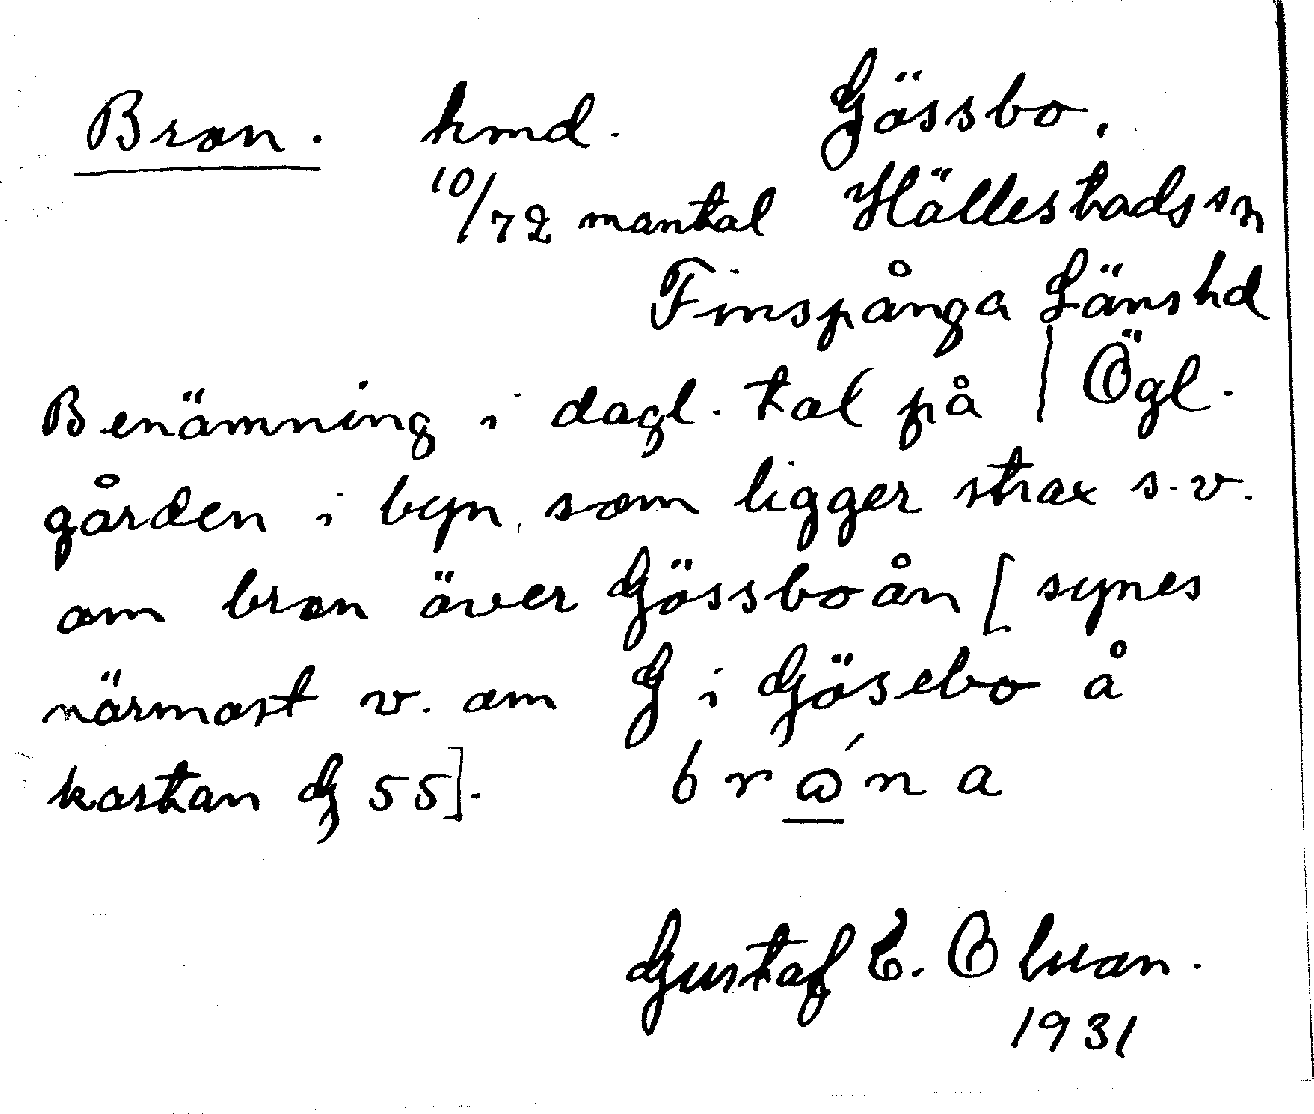 Bron. hmd. Gössbo,
10/72 mantal Hällestads sn
Finspånga Länshd
Benämning i dagl. tal på | Ögl.
gården i byn, som ligger strax s.v.
om bron över Gössboån [synes
närmast v. om G i Gösebo å
kartan G 55]. brώna
Gustaf E. Olsson.
1931